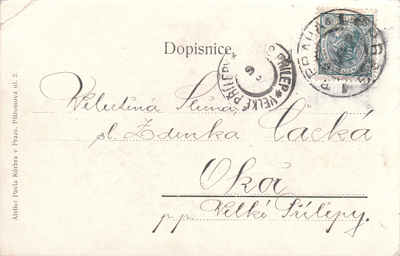 Dopisnice.
VELKÉ PŘÍLEPY
Velectěná Slečna
sl. Zdenka Cacká
Okoř
p. p. Velké Přílepy.
Atelier Pavla Körbra v Praze, Pštrossova ul. 2.